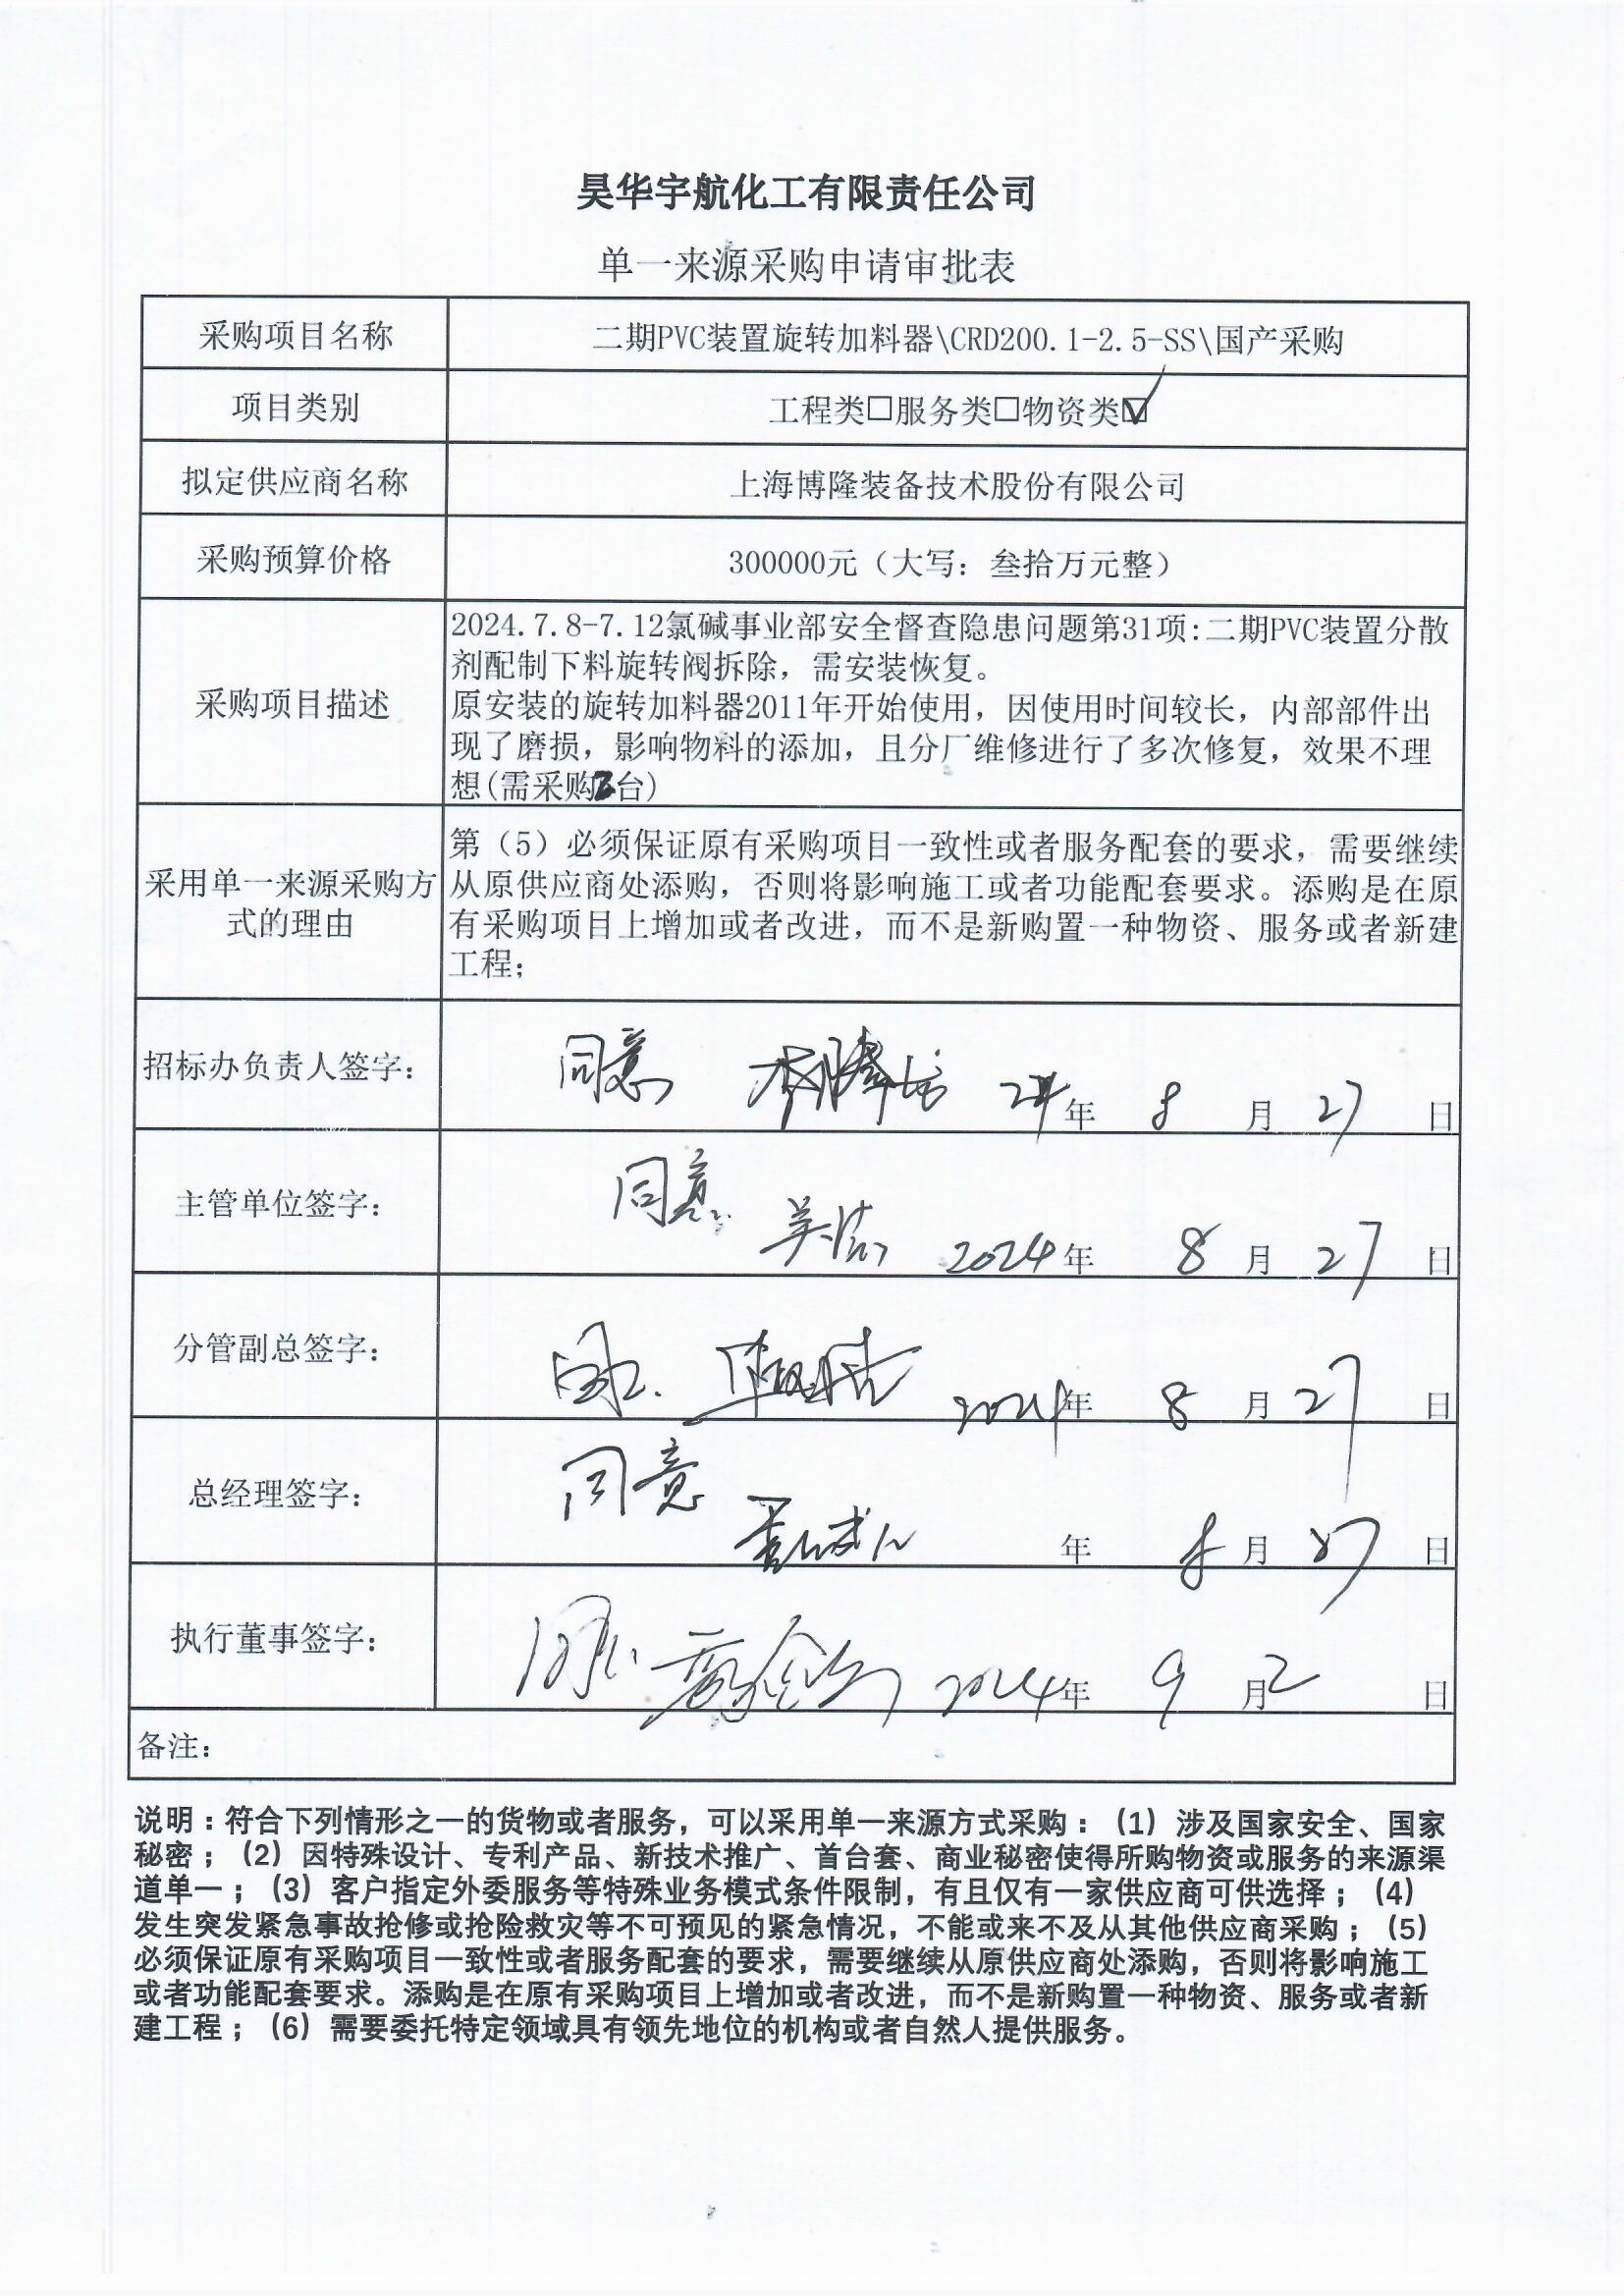 昊华宇航化工有限责任公司
单一来源采购申请审批表
采购项目名称
二期PVC装置旋转加料器\CRD200.1-2.5-SS\国产采购
项目类别
工程类□服务类□物资类☑
拟定供应商名称
上海博隆装备技术股份有限公司
采购预算价格
300000元（大写：叁拾万元整）
采购项目描述
2024.7.8-7.12氯碱事业部安全督查隐患问题第31项:二期PVC装置分散
剂配制下料旋转阀拆除，需安装恢复。
原安装的旋转加料器2011年开始使用，因使用时间较长，内部部件出
现了磨损，影响物料的添加，且分厂维修进行了多次修复，效果不理
想(需采购台)
采用单一来源采购方
式的理由
第（5）必须保证原有采购项目一致性或者服务配套的要求，需要继续
从原供应商处添购，否则将影响施工或者功能配套要求。添购是在原
有采购项目上增加或者改进，而不是新购置一种物资、服务或者新建
工程；
招标办负责人签字：
同意 24年 8 月 27 日
主管单位签字：
同意 2024年 8 月 27 日
分管副总签字：
同意. 2024年 8 月 27 日
总经理签字：
同意 年 8 月 27 日
执行董事签字：
同意 2024年 9 月 2 日
备注：
说明：符合下列情形之一的货物或者服务，可以采用单一来源方式采购：（1）涉及国家安全、国家
秘密；（2）因特殊设计、专利产品、新技术推广、首台套、商业秘密使得所购物资或服务的来源渠
道单一；（3）客户指定外委服务等特殊业务模式条件限制，有且仅有一家供应商可供选择；（4）
发生突发紧急事故抢修或抢险救灾等不可预见的紧急情况，不能或来不及从其他供应商采购；（5）
必须保证原有采购项目一致性或者服务配套的要求，需要继续从原供应商处添购，否则将影响施工
或者功能配套要求。添购是在原有采购项目上增加或者改进，而不是新购置一种物资、服务或者新
建工程；（6）需要委托特定领域具有领先地位的机构或者自然人提供服务。